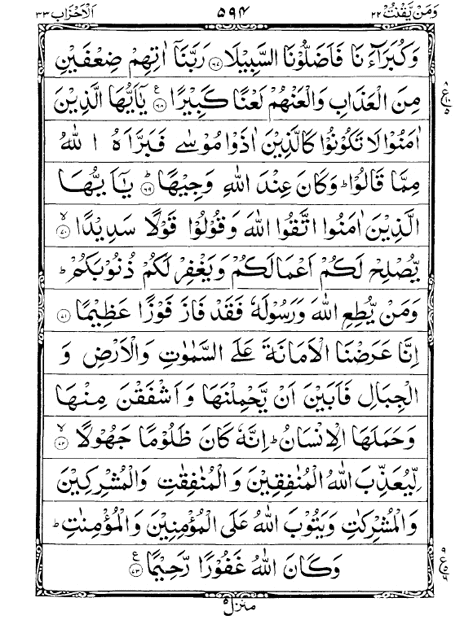 ومن يقنت ٢٢ ٥٩٤ الاحزاب ٣٣
وَكُبَرَآءَنَا فَاَضَلُّوْنَا السَّبِيْلَا ﴿۶۷﴾ رَبَّنَآ اٰتِهِمْ ضِعْفَيْنِ
مِنَ الْعَذَابِ وَالْعَنْهُمْ لَعْنًا كَبِيْرًا ﴿۶۸﴾ يٰۤاَيُّهَا الَّذِيْنَ
اٰمَنُوْا لَا تَكُوْنُوْا كَالَّذِيْنَ اٰذَوْا مُوْسٰى فَبَرَّاَهُ اللهُ
مِمَّا قَالُوْا ؕ وَكَانَ عِنْدَ اللهِ وَجِيْهًا ﴿۶۹﴾ يٰۤاَيُّهَا
الَّذِيْنَ اٰمَنُوا اتَّقُوا اللهَ وَقُوْلُوْا قَوْلًا سَدِيْدًا ﴿۷۰﴾
يُّصْلِحْ لَكُمْ اَعْمَالَكُمْ وَيَغْفِرْ لَكُمْ ذُنُوْبَكُمْ ؕ
وَمَنْ يُّطِعِ اللهَ وَرَسُوْلَهٗ فَقَدْ فَازَ فَوْزًا عَظِيْمًا ﴿۷۱﴾
اِنَّا عَرَضْنَا الْاَمَانَةَ عَلَى السَّمٰوٰتِ وَالْاَرْضِ وَ
الْجِبَالِ فَاَبَيْنَ اَنْ يَّحْمِلْنَهَا وَاَشْفَقْنَ مِنْهَا
وَحَمَلَهَا الْاِنْسَانُ ؕ اِنَّهٗ كَانَ ظَلُوْمًا جَهُوْلًا ﴿۷۲﴾
لِّيُعَذِّبَ اللهُ الْمُنٰفِقِيْنَ وَالْمُنٰفِقٰتِ وَالْمُشْرِكِيْنَ
وَالْمُشْرِكٰتِ وَيَتُوْبَ اللهُ عَلَى الْمُؤْمِنِيْنَ وَالْمُؤْمِنٰتِ ؕ
وَكَانَ اللهُ غَفُوْرًا رَّحِيْمًا ﴿۷۳﴾
منزل ۵